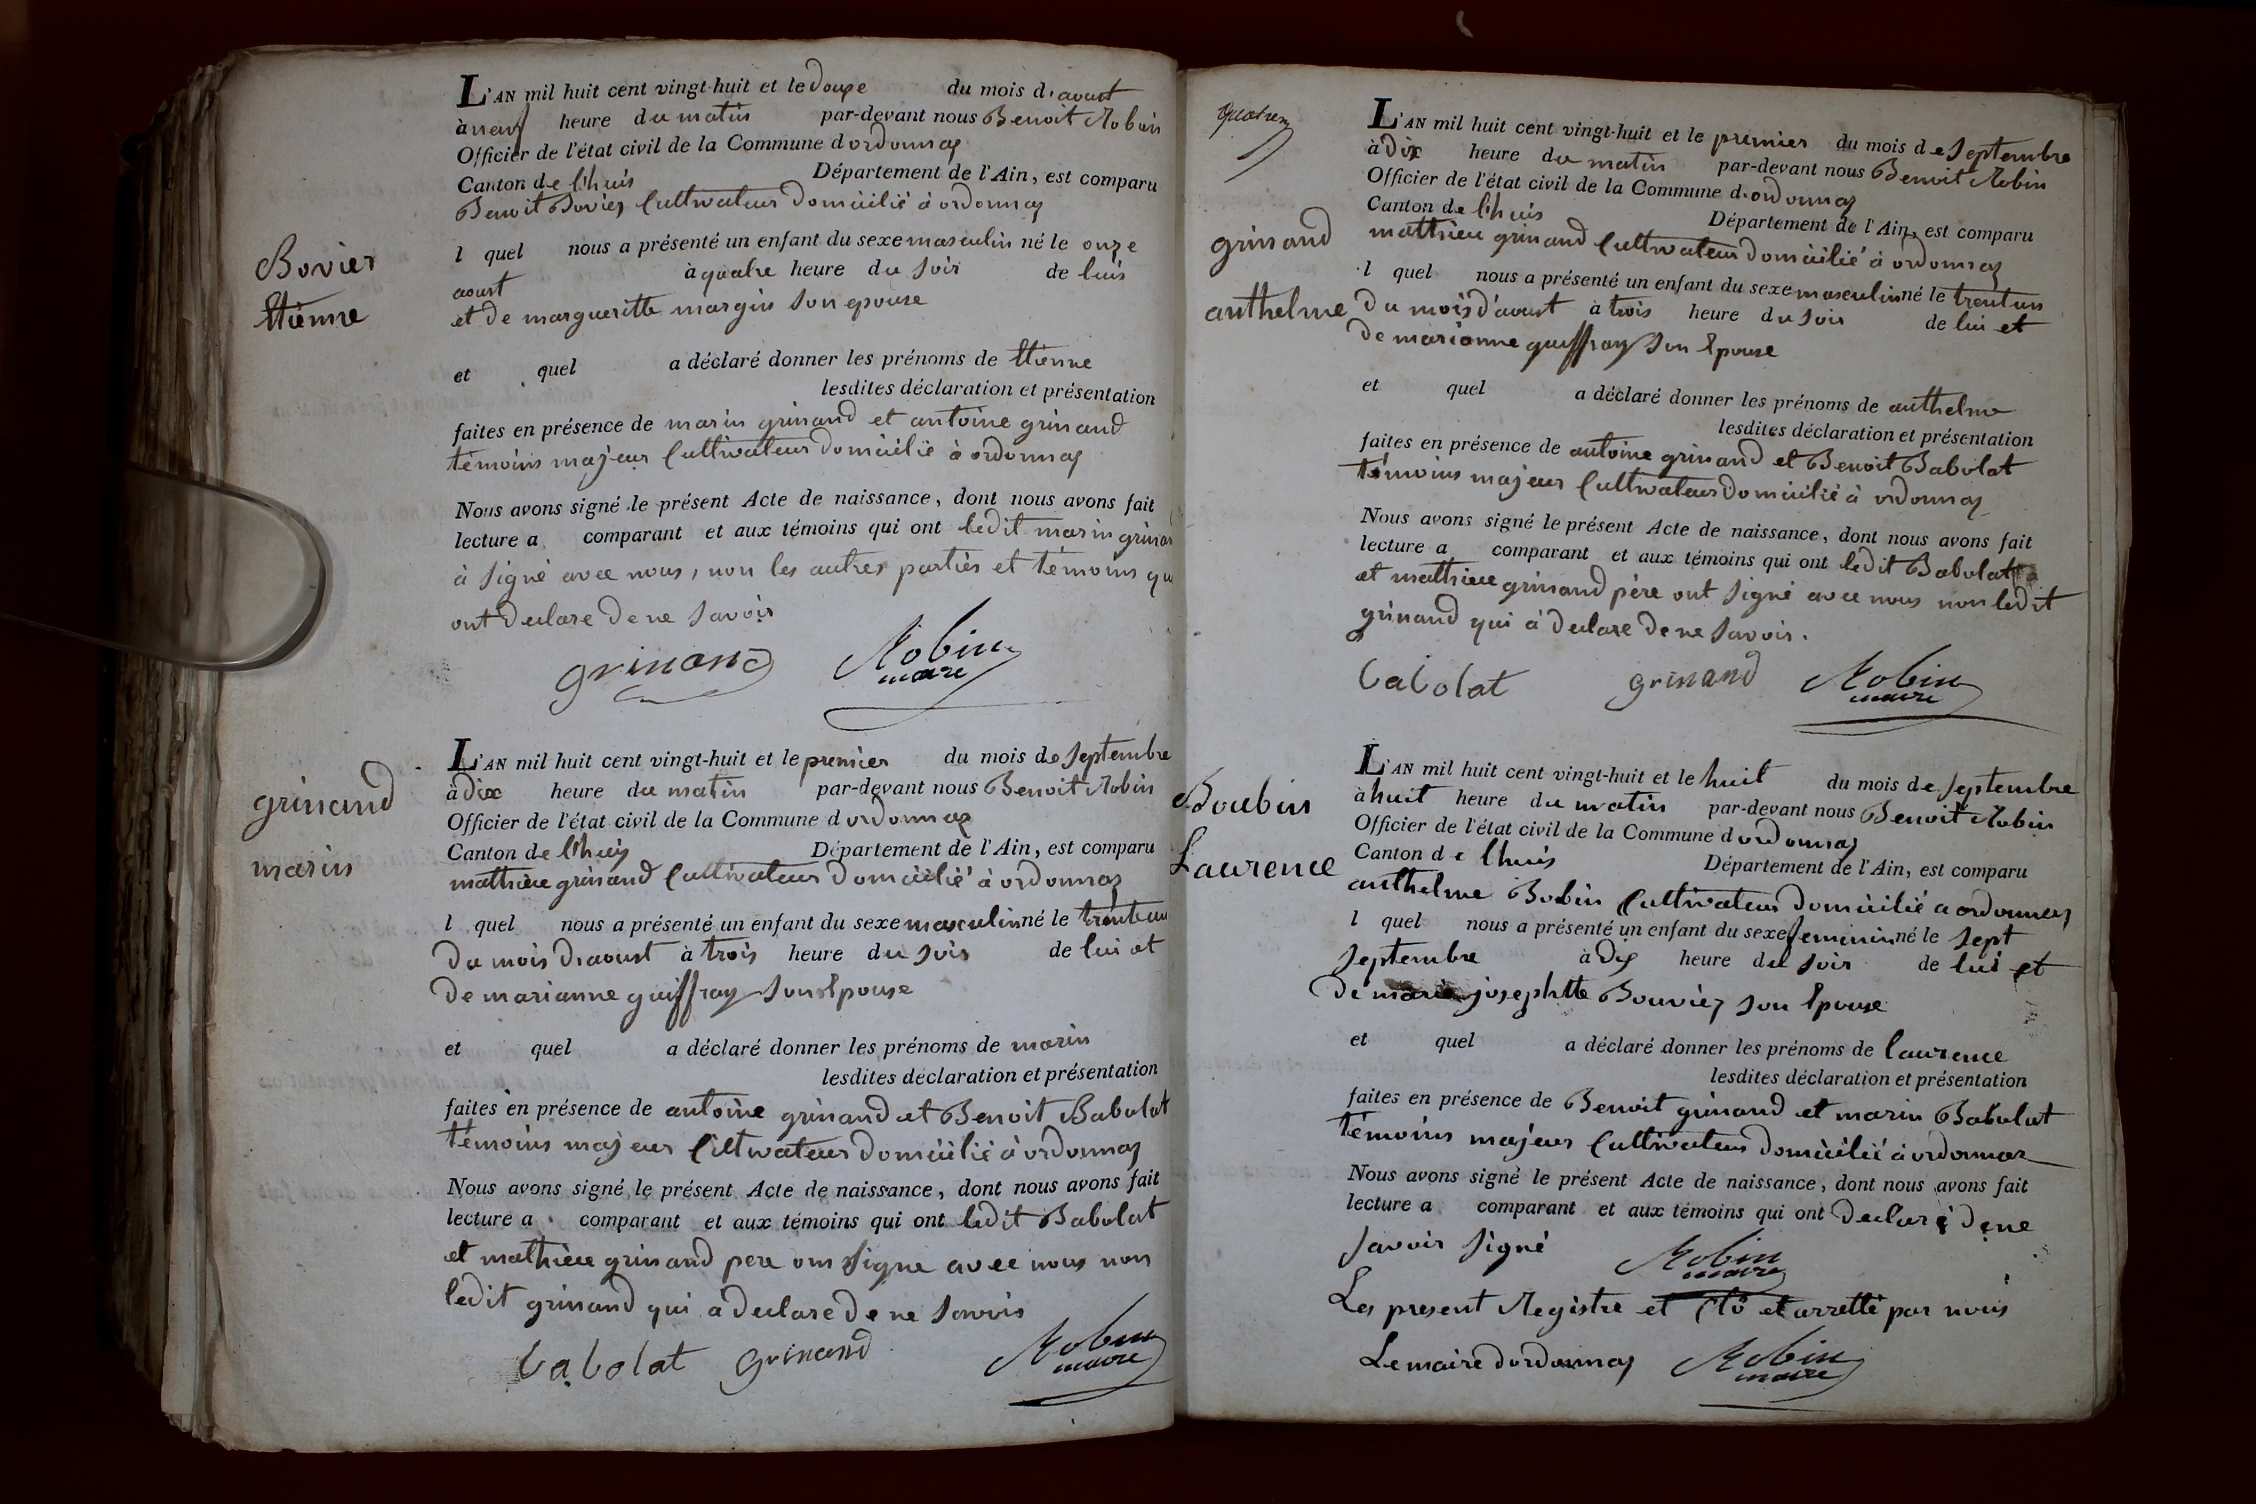 L'AN mil huit cent vingt-huit et le douze du mois d'aoust
à neuf heure du matin par-devant nous Benoit Robin
Officier de l'état civil de la Commune d'ordonnaz
Canton de l'huis Département de l'Ain, est comparu
Benoit Bovier Cultivateur domicilié à ordonnaz
l quel nous a présenté un enfant du sexe masculin né le onze
aoust à quatre heure du soir de luis
et de margueritte margin son epouse
Bovier
Etienne
et quel a déclaré donner les prénoms de Etienne
lesdites déclaration et présentation
faites en présence de marin grinand et antoine grinand
témoins majeur Cultivateur domicilié à ordonnaz
Nous avons signé le présent Acte de naissance, dont nous avons fait
lecture a comparant et aux témoins qui ont ledit marin grinan
à signé avec nous, non les autres partiès et témoins qu
ont declare de ne savoir
grinand Robin
maire
L'AN mil huit cent vingt-huit et le premier du mois de Septembre
à dix heure du matin par-devant nous Benoit Robin
Officier de l'état civil de la Commune d'ordonnaz
Canton de l'huis Département de l'Ain, est comparu
mathieu grinand Cultivateur domicilié à ordonnaz
grinand
marin
l quel nous a présenté un enfant du sexe masculin né le trente un
du mois d'aoust à trois heure du soir de lui et
de marianne guiffray son Epouse
et quel a déclaré donner les prénoms de marin
lesdites déclaration et présentation
faites en présence de antoine grinand et Benoit Babolat
témoins majeur Cultivateur domicilié à ordonnaz
Nous avons signé le présent Acte de naissance, dont nous avons fait
lecture a comparant et aux témoins qui ont ledit Babolat
et mathieu grinand pere on signe avec nous non
ledit grinand qui a declare de ne savoir
babolat grinand Robin
maire
L'AN mil huit cent vingt-huit et le premier du mois de Septembre
à dix heure du matin par-devant nous Benoit Robin
Officier de l'état civil de la Commune d'ordonnaz
Canton de l'huis Département de l'Ain, est comparu
mathieu grinand Cultivateur domicilié à ordonnaz
grinand
anthelme
l quel nous a présenté un enfant du sexe masculin né le trent un
du mois d'avust à trois heure du soir de lui et
de marianne guiffray son Epouse
et quel a déclaré donner les prénoms de anthelme
lesdites déclaration et présentation
faites en présence de antoine grinand et Benoit Babolat
témoins majeur Cultivateur domicilié à ordonnaz
Nous avons signé le présent Acte de naissance, dont nous avons fait
lecture a comparant et aux témoins qui ont ledit Babolat
et mathieu grinand père ont signé avec nous non ledit
grinand qui à declare de ne savoir.
babolat grinand Robin
maire
L'AN mil huit cent vingt-huit et le huit du mois de Septembre
à huit heure du matin par-devant nous Benoit Robin
Officier de l'état civil de la Commune d'ordonnaz
Canton de lhuis Département de l'Ain, est comparu
anthelme Bobin Cultivateur domicilié a ordonnaz
Boubin
Laurence
l quel nous a présenté un enfant du sexe feminin né le sept
Septembre à dix heure du soir de lui et
de marie josephtte Bouvier son Epouse
et quel a déclaré donner les prénoms de laurence
lesdites déclaration et présentation
faites en présence de Benoit grinand et marin Babolat
témoins majeur Cultivateur domicilié à ordonnaz
Nous avons signé le présent Acte de naissance, dont nous avons fait
lecture a comparant et aux témoins qui ont declaré de ne
savoir signé Robin
maire
Les present Registre et Clô et arretté par nous
Le maire d'ordonnaz Robin
maire